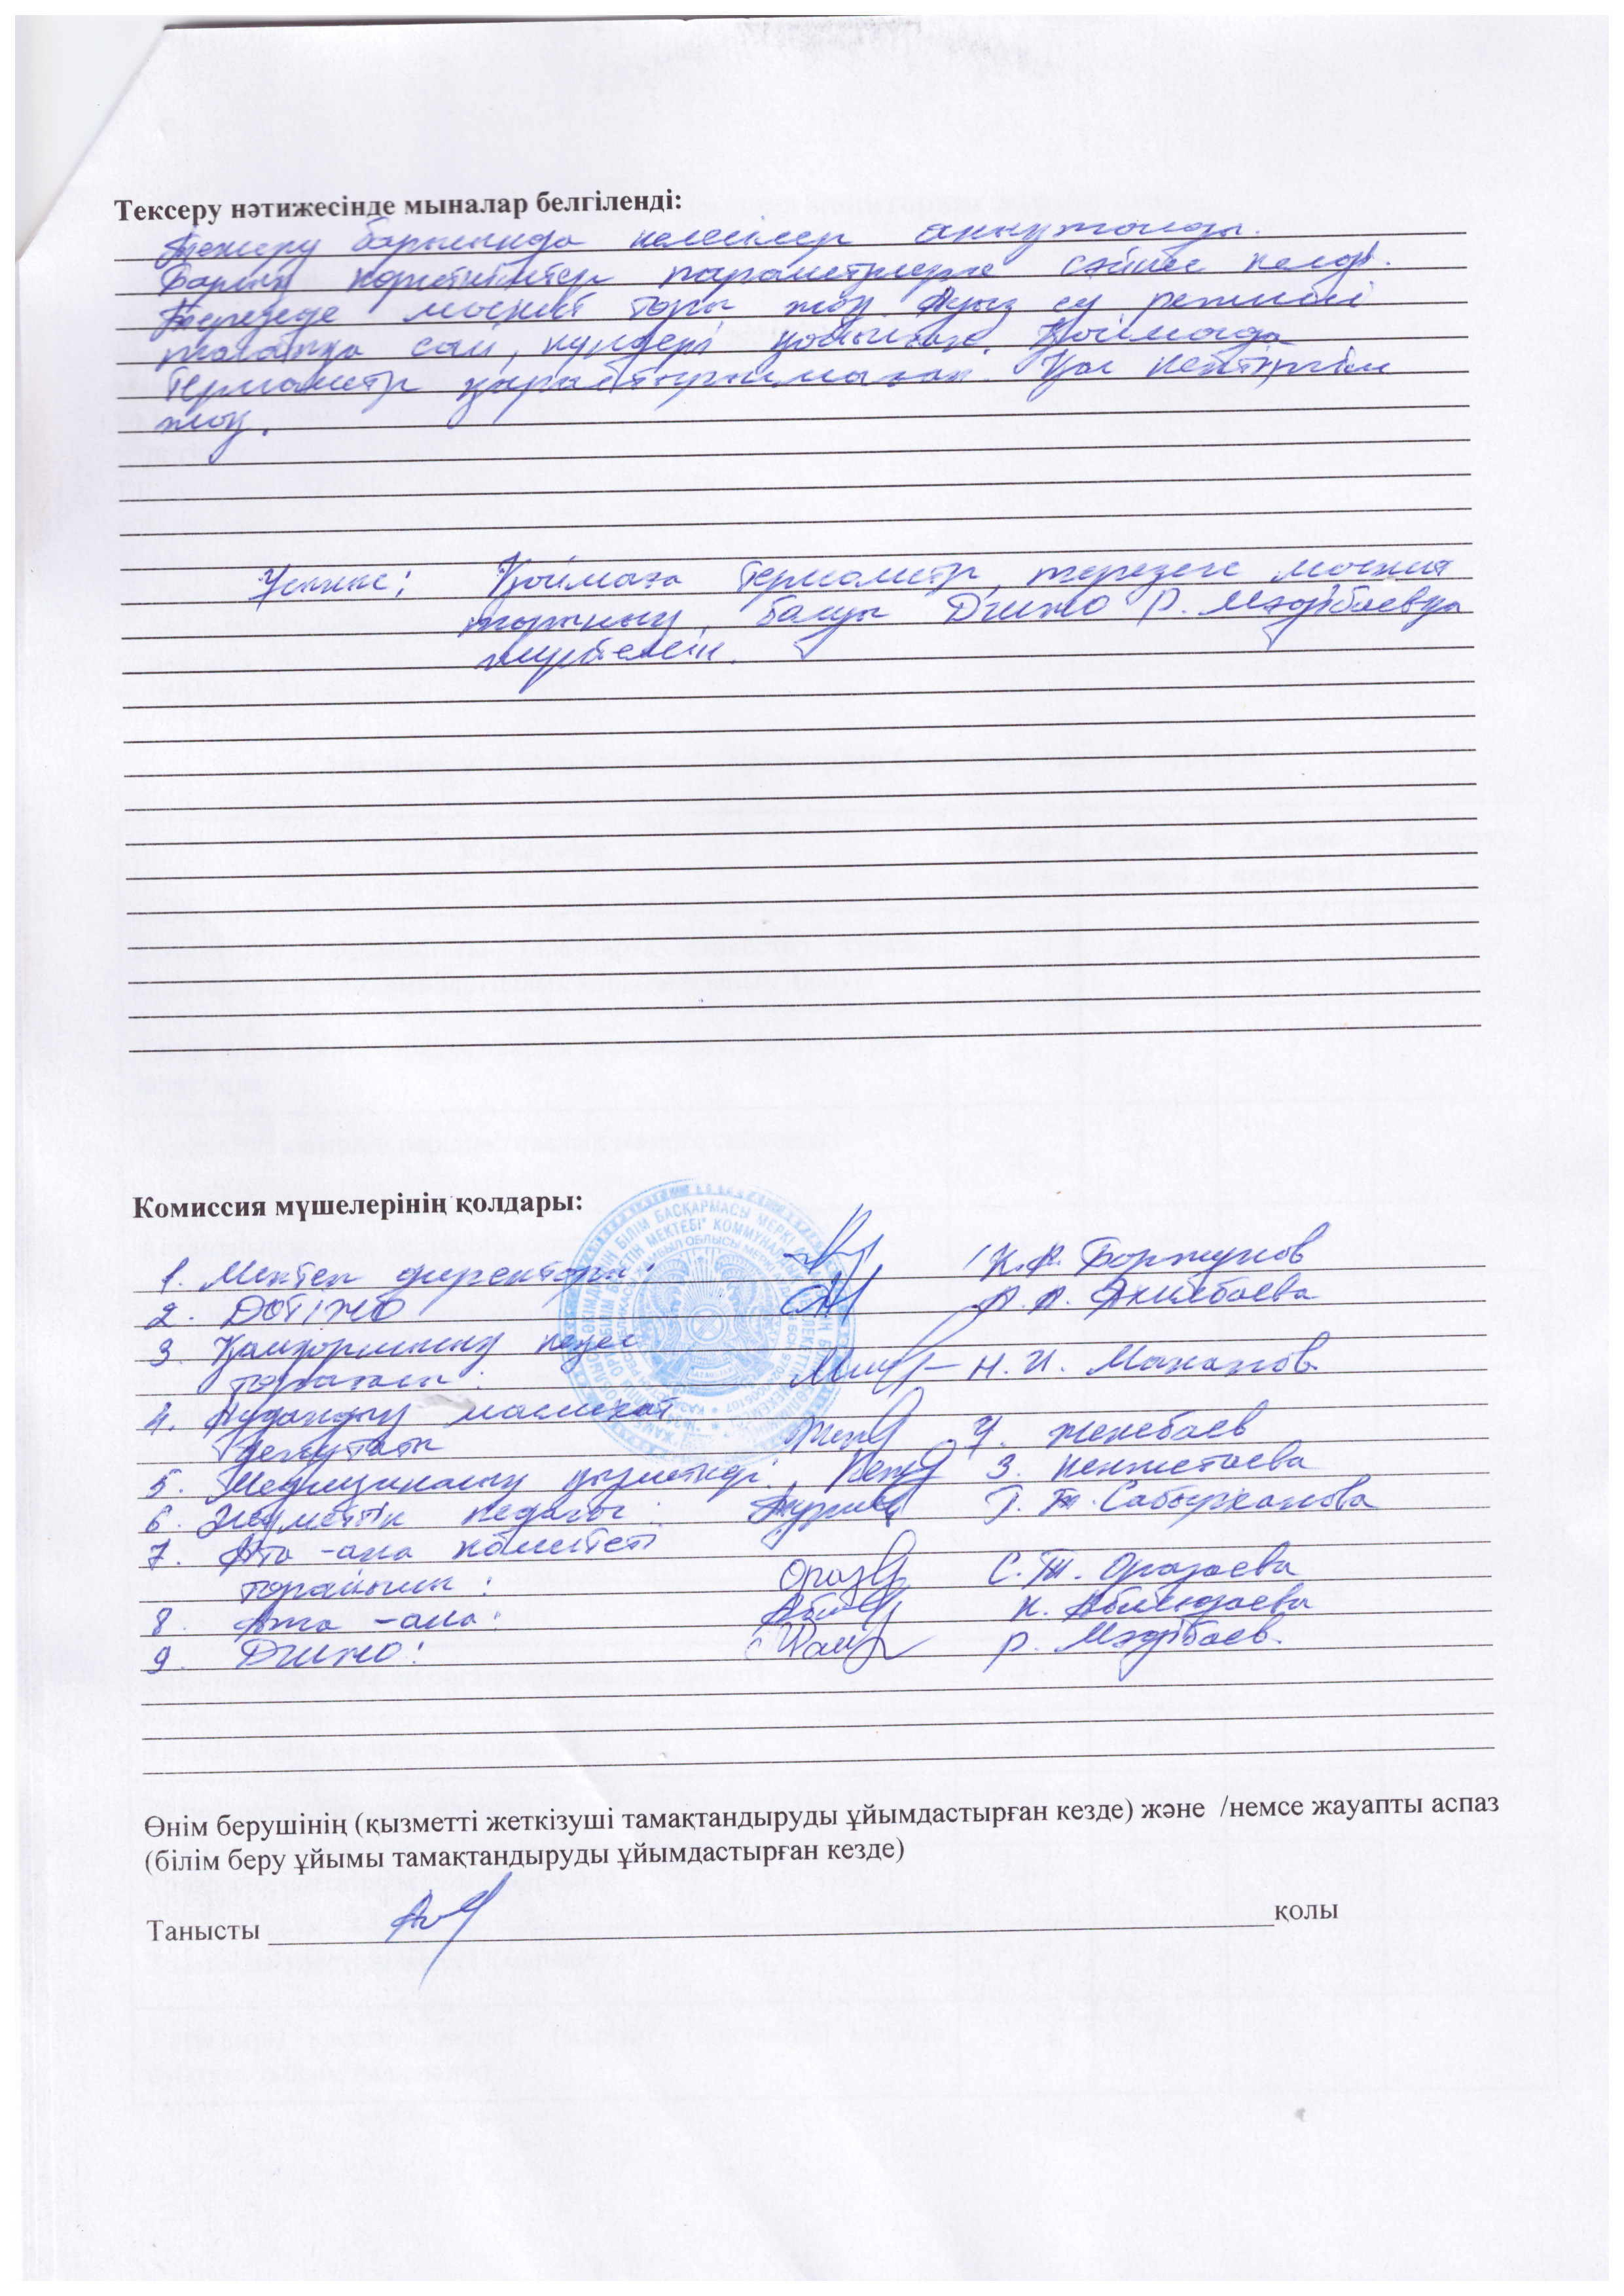 Тексеру нәтижесінде мыналар белгіленді:
Тексеру барысында келесілер анықталды.
Барлық көрсеткіштер параметрлерге сәйкес келді.
Терезеде москит торы жоқ. Ауыз су режимі
талапқа сай, күнделі қойылған. Қоймада
термометр қарастырылмаған. Қол кептіргіш
жоқ.
Ұсыныс: Қоймаға термометр, терезеге москит
торының болуы ДШІЖО Р. Мәдібаевқа
жүктелсін.
Комиссия мүшелерінің қолдары:
1. Мектеп директоры: К.К. Боржунов
2. ДОТІЖО А. А. Акимбаева
3. Қамқоршылық кеңес
төрағасы: Н. И. Маканов
4. Аудандық маслихат
депутаты У. Женебаев
5. Медициналық қызметкері: З. Кенжетаева
6. Әлеуметтік педагог: Г. Т. Сабырханова
7. Ата-ана комитеті
төрайымы: С. Т. Оразаева
8. Ата-ана: К. Абилдаева
9. ДШІЖО: Р. Мәдібаев.
Өнім берушінің (қызметті жеткізуші тамақтандыруды ұйымдастырған кезде) және /немсе жауапты аспаз
(білім беру ұйымы тамақтандыруды ұйымдастырған кезде)
Танысты қолы